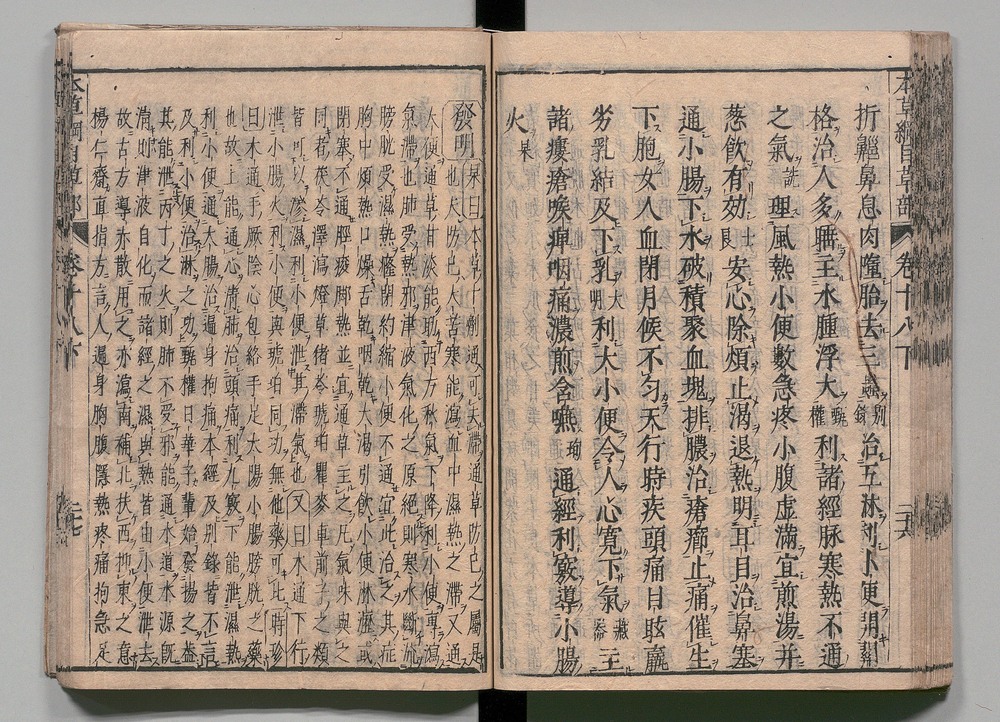 本草綱目草部 卷十八下 三六
折齆鼻息肉墮胎去三蟲別錄治五淋利小便開關
格治人多睡主水腫浮大甄權利諸經脉寒熱不通
之氣詵理風熱小便數急疼小腹虛滿宜煎湯并
葱飲有効士良安心除煩止渴退熱明耳目治鼻塞
通小腸下水破積聚血塊排膿治瘡癤止痛催生
下胞女人血閉月候不勻天行時疾頭痛目眩羸
劣乳結及下乳大明利大小便令人心寬下氣藏器主
諸瘻瘡喉痺咽痛濃煎含嚥珣通經利竅導小腸
火杲
發明杲曰本草十劑通可去滯通草防己之屬是
也夫防己大苦寒能瀉血中濕熱之滯又通
大便通草甘淡能助西方秋氣下降利小便專瀉
氣滯也肺受熱邪津液氣化之原絕則寒水斷流
膀胱受濕熱癃閉約縮小便不通宜此治之其症
胸中煩熱口燥舌乾咽乾大渴引飲小便淋瀝或
閉塞不通脛痠脚熱並宜通草主之凡氣味與之
同者茯苓澤瀉燈草猪苓琥珀瞿麥車前子之類
皆可以滲濕利小便泄其滯氣也又曰木通下行
泄小腸火利小便與琥珀同功無他藥可比時珍
曰木通手厥陰心包絡手足太陽小腸膀胱之藥
也故上能通心清肺治頭痛利九竅下能泄濕熱
利小便通大腸治遍身拘痛本經及別錄皆不言
及利小便治淋之功甄權日華子輩始發揚之蓋
其能泄丙丁之火則肺不受邪能通水道水源旣
清則津液自化而諸經之濕與熱皆由小便泄去
故古方導赤散用之亦瀉南補北扶西抑東之意
楊仁齋直指方言人遍身胸腹隱熱疼痛拘急足
本草綱目草部 卷十八下 三七